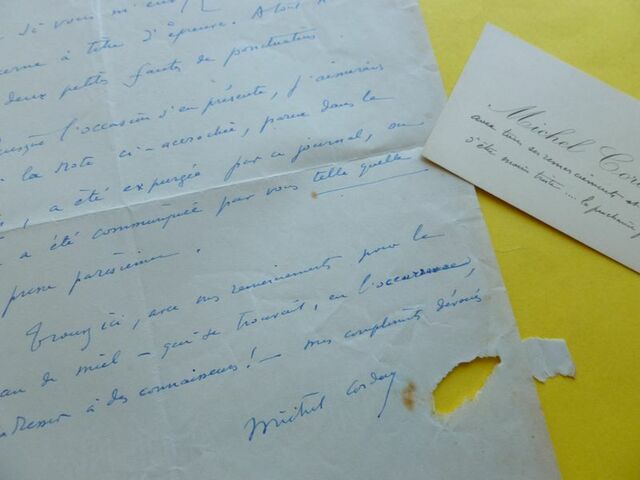 si vous m'en
à tête d'épreuve. A tout
deux petits fautes de ponctuation.
l'occasion s'en présente, j'aimerais
la note ci-accrochée, parue dans la
, a été expurgée par ce journal, ou
a été communiquée par vous telle quelle
presse parisienne.
Trouvez ici, avec nos remerciements pour la
de miel - qui se trouvait, en l'occurrence,
à des connaisseurs! - mes compliments dévoués
Michel Corday
Michel Cor
avec tous ses remerciements et
d'être moins triste ... la prochaine f